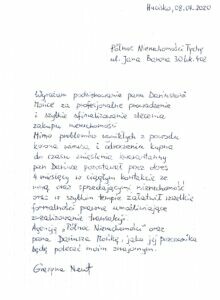 08.04.2020
Północ Nieruchomości Tychy
ul. Jana Barona 30 lok. 402
Wyrażam podziękowanie panu Dariuszowi
za profesjonalne prowadzenie
i szybkie sfinalizowanie zlecenia
zakupu nieruchomości.
Mimo problemów wynikłych z powodu
korona wirusa i odroczenia kupna
do czasu zniesienia kwarantanny
pan Dariusz pozostawał przez okres
4 miesięcy w ciągłym kontakcie ze
mną oraz sprzedającymi nieruchomość
oraz w szybkim tempie załatwił wszelkie
formalności prawne umożliwiające
zrealizowanie transakcji.
Agencję "Północ Nieruchomości" oraz
pana Dariusza jako jej pracownika
będę polecać moim znajomym.
Grażyna